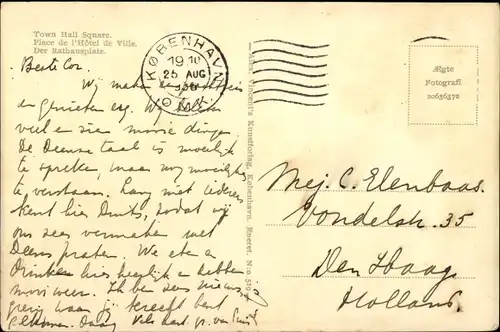 Town Hall Square.
Place de l'Hôtel de Ville.
Der Rathausplatz.
KØBENHAVN
19.10
25 AUG
Ægte
Fotografi
20636372
Alex Vincent's Kunstforlag, København. Eneret. No. 519
Beste Cor.
Wij maken
en genieten erg. Wij
veel en zien mooie dingen.
De Deense taal is moeilijk
te spreken, maar nog moeilijker
te verstaan. Lang niet iedereen
kent hier Duits, zodat wij
ons zeer vermaken met
Deens praten. We eten en
drinken hier heerlijk en hebben
mooi weer. Ik ben zeer nieuws-
gierig waar jij terecht bent
Mej. C. Elenbaas.
Vondelstr. 35
Den Haag.
Holland.